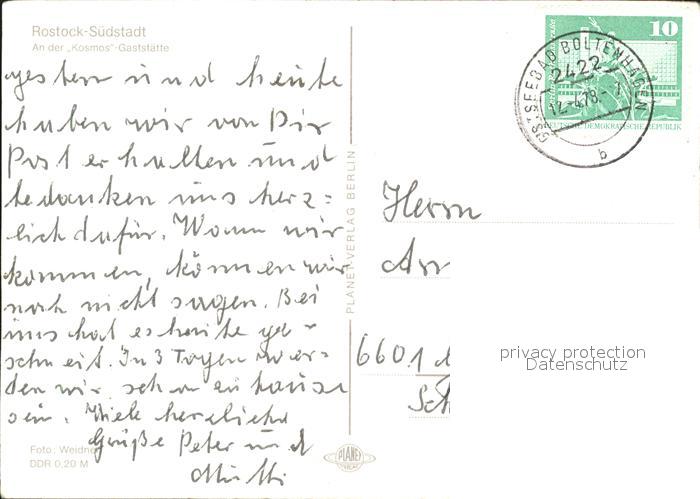 Rostock-Südstadt
An der „Kosmos"-Gaststätte
gestern und heute
haben wir von Dir
Post erhalten und
bedanken uns herz=
lich dafür. Wann wir
kommen, können wir
noch nicht sagen. Bei
uns hat es heute ge-
schneit. In 3 Tagen wer=
den wir schon zuhause
sein. Viele herzliche
Grüße Peter und
Mutti
Foto: Weidner
DDR 0,20 M
PLANET-VERLAG BERLIN
PLANET
VERLAG
10
DEUTSCHE DEMOKRATISCHE REPUBLIK
OSTSEEBAD BOLTENHAGEN
2422
12.-4.78.-
b
Herrn
6601
Sch
privacy protection
Datenschutz